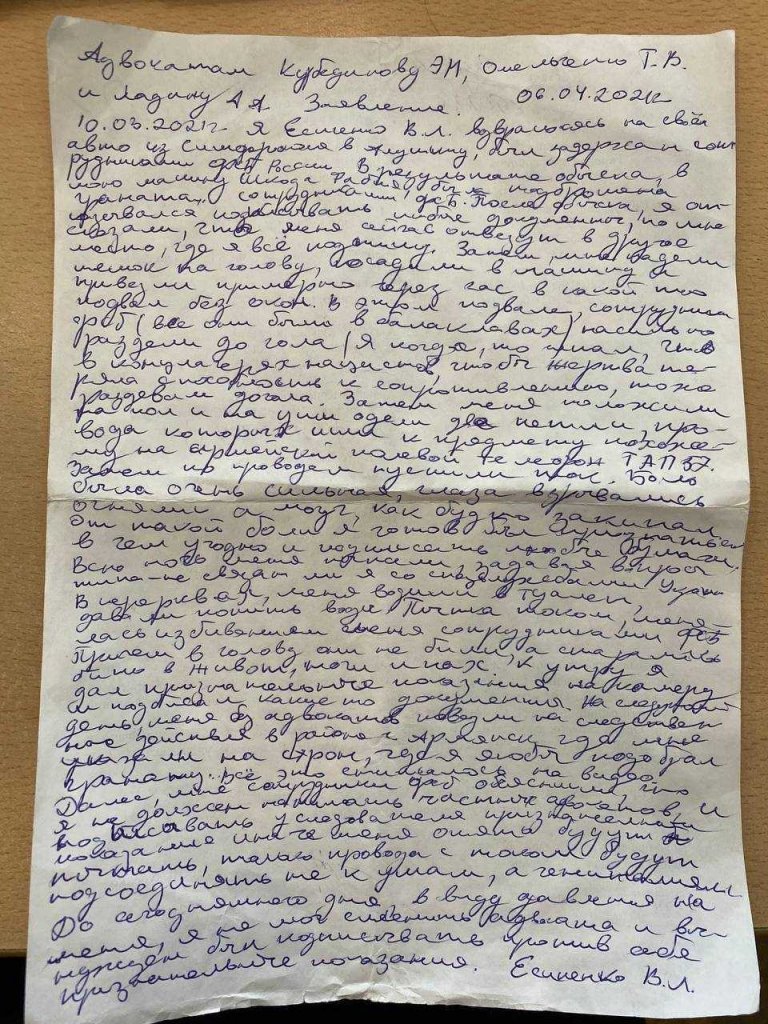 Адвокатам Курбединову ЭМ, Омельченко Т.В.
и Ладину А А Заявление. 06.04.2021г
10.03.2021г Я Есипенко В.Л. возвращаясь на своём
авто из Симферополя в Алушту, был задержан сот
рудниками ФСБ России. В результате обыска, в
мою машину Шкода Фабия была подброшена
граната.. сотрудниками ФСБ. После обыска, я от
казывался подписывать любые документы, но мне
сказали, что меня сейчас отвезут в другое
место, где я всё подпишу. Затем мне надели
мешок на голову, посадили в машину и
привезли примерно через час в какой то
подвал без окон. В этом подвале, сотрудники
фсб (все они были в балаклавах) насильно
раздели до гола (я когда, то читал, что
в концлагерях нацистов, чтобы жертва те-
ряла способность к сопротивлению, тоже
раздевали догола. Затем меня положили
на пол и на уши одели две петли, про-
вода которых шли к предмету похоже-
му на армейский полевой телефон ТАП 57.
Затем по проводам пустили ток. Боль
была очень сильная, глаза взрывались
огнями а мозг, как будто закипал
От такой боли я готов был признаться
в чем угодно и подписать любые бумаги.
Всю ночь меня пытали, задавая вопросы
типа-не связан ли я со спецслужбами Украины
В перерывах, меня водили в туалет,
давали попить воды. Пытка током, меня-
лась избиванием меня сотрудниками ФСБ
Причем в голову они не били, а старались
бить в живот, ноги и пах, к утру я
дал признательные показания на камеру
и подписал какие то документы. На следующий
день меня без адвоката повезли на следствен
ные действия в район г Армянск, где мне
указали на схрон, где я якобы подобрал
гранату.. Всё это снималось на видео.
Далее, мне сотрудники фсб объяснили что
я не должен нанимать частных адвокатов, и
подписывать у следователя признательные
показания иначе меня опять будут
пытать, только провода с током будут
подсоединять не к ушам, а гениталиям.
До сегодняшнего дня, в виду давления на
меня, я не мог сменить адвоката и вы-
нужден был подписывать против себя
признательные показания. Есипенко В.Л.